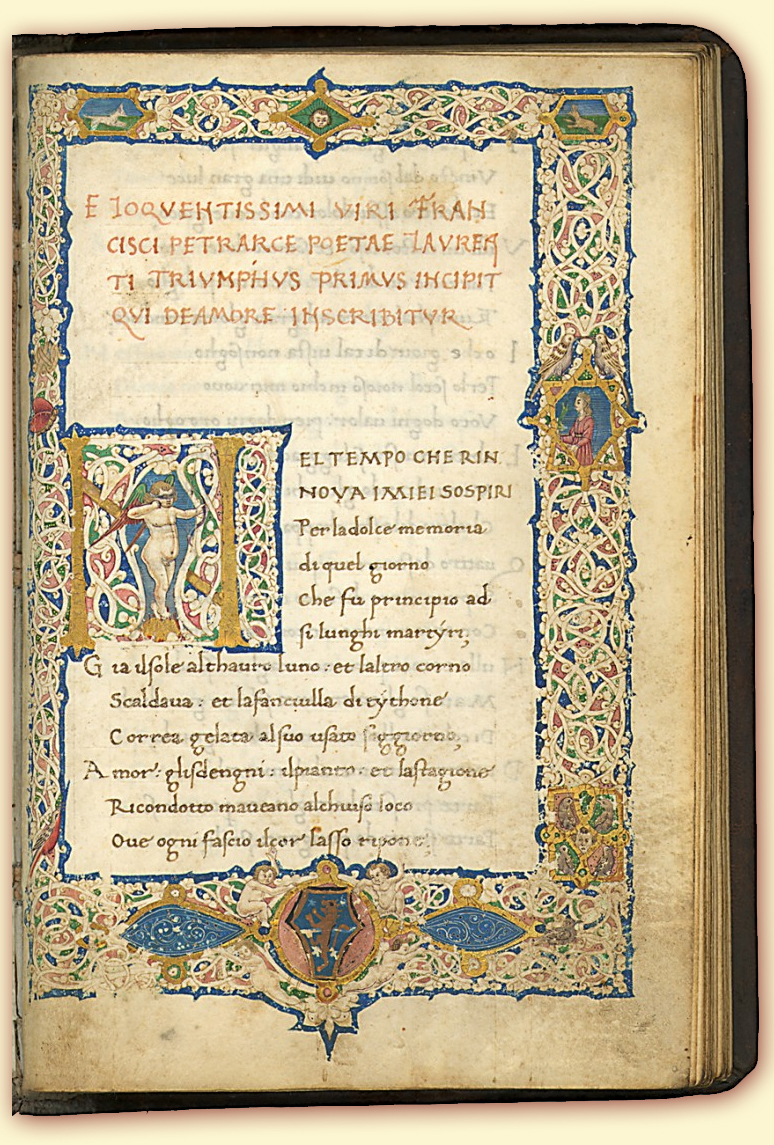 ELOQVENTISSIMI VIRI FRAN
CISCI PETRARCE POETAE LAVREA
TI TRIVMPHVS PRIMVS INCIPIT
QVI DEAMORE INSCRIBITVR
NEL TEMPO CHE RIN
NOVA IMIEI SOSPIRI
Per la dolce memoria
di quel giorno
Che fu principio ad
si lunghi martyri,
Gia ilsole althauro luno: et laltro corno
Scaldaua: et lafanciulla di tythone
Correa gelata alsuo usato soggiorno,
Amor: glisdengni: ilpianto: et lastagione
Ricondotto maueano alchiuso loco
Oue ogni fascio ilcor lasso ripone,